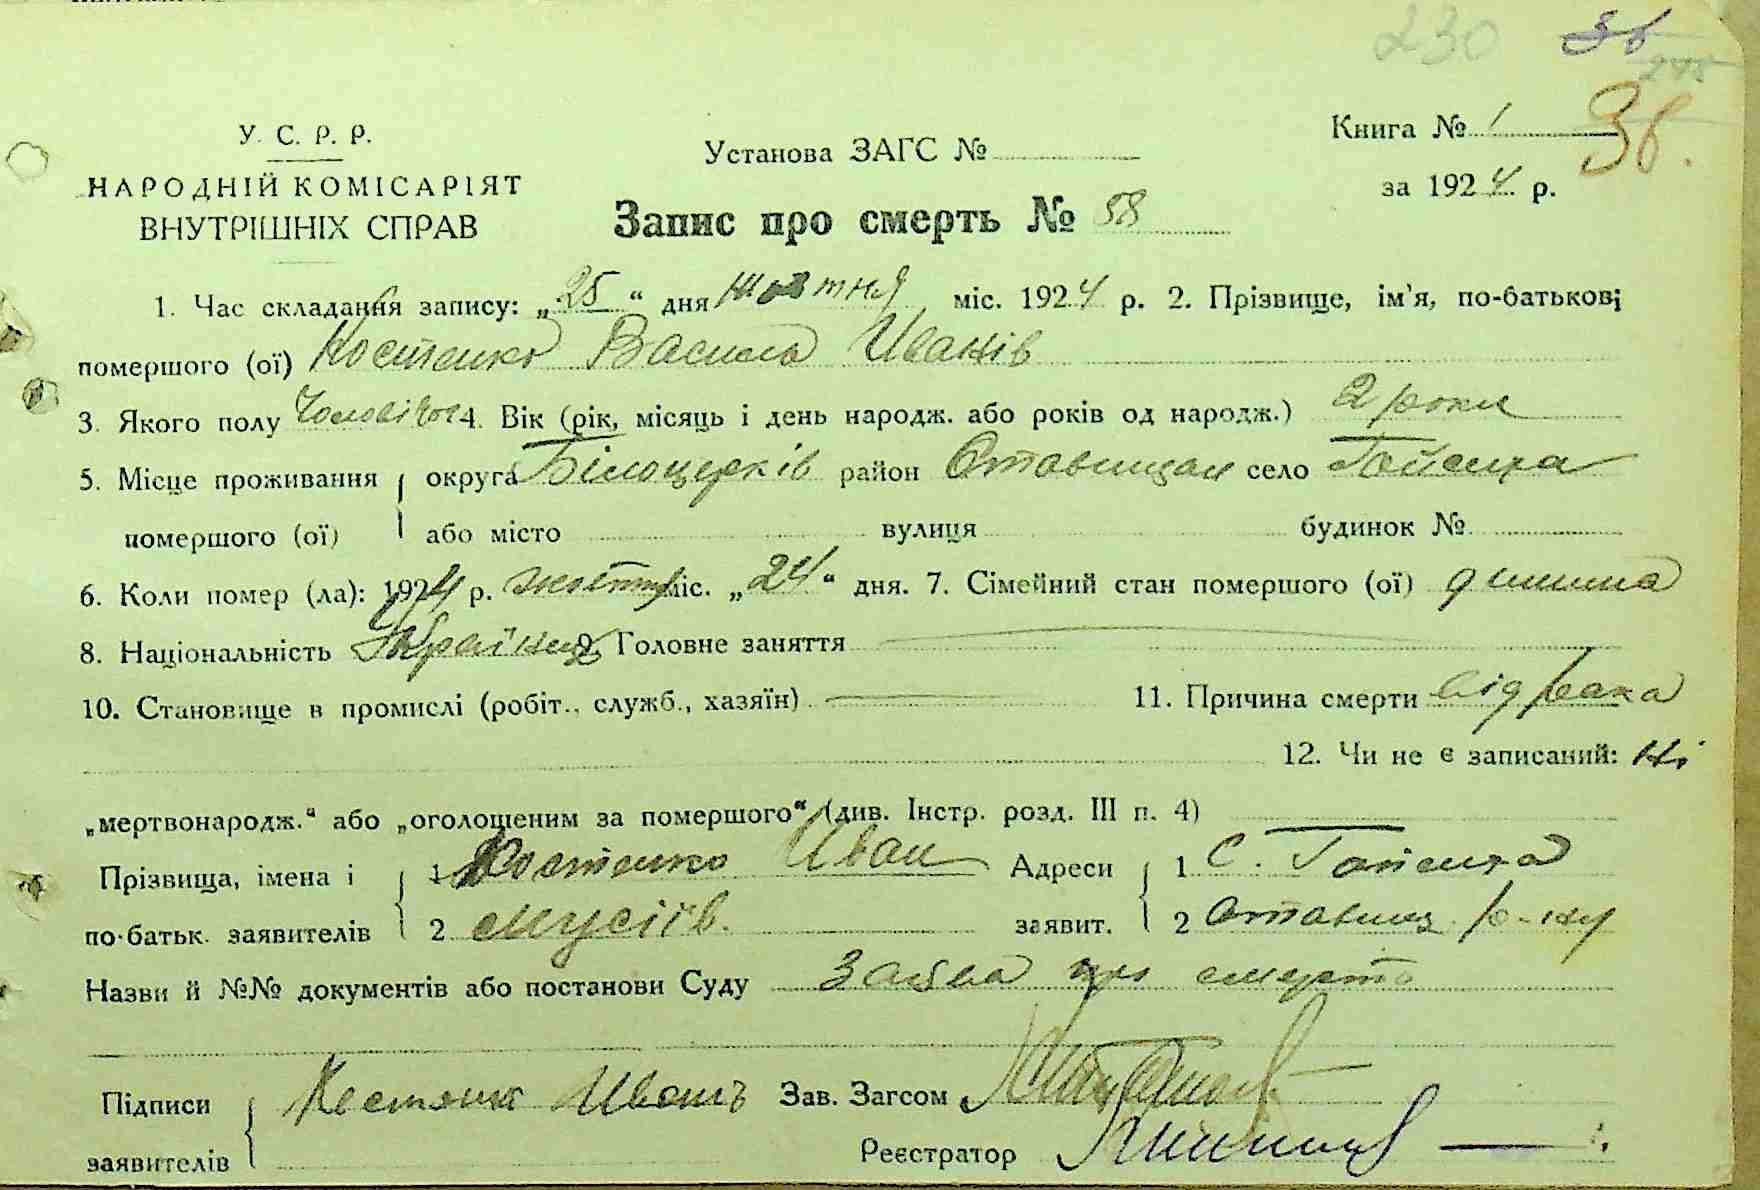 230 36
275
36.
У. С. Р. Р.
НАРОДНІЙ КОМІСАРІЯТ
ВНУТРІШНІХ СПРАВ
Установа ЗАГС №
Запис про смерть № 58
Книга № 1
за 1924 р.
1. Час складання запису: „25" дня жовтня міс. 1924 р. 2. Прізвище, ім'я, по-батькові
помершого (ої) Костенко Василь Иванів
3. Якого полу Чоловічог 4. Вік (рік, місяць і день народж. або років од народж.) 2 роки
5. Місце проживання округа Білоцерків район Ставищан село Гайсиха
помершого (ої) або місто вулиця будинок №
6. Коли помер (ла): 1924 р. жовтня міс. „24" дня. 7. Сімейний стан помершого (ої) дитина
8. Національність Україне 9. Головне заняття
10. Становище в промислі (робіт., служб., хазяїн) 11. Причина смерти від рака
12. Чи не є записаний: Ні
„мертвонародж." або „оголошеним за помершого" (див. Інстр. розд. III п. 4)
Прізвища, імена і 1 Костенко Иван Адреси 1 С. Гайсиха
по-батьк. заявителів 2 Мусіїв. заявит. 2 Ставищ. р-ну
Назви й №№ документів або постанови Суду Заява про смерть
Підписи Костенк Иванъ Зав. Загсом
заявителів Реєстратор